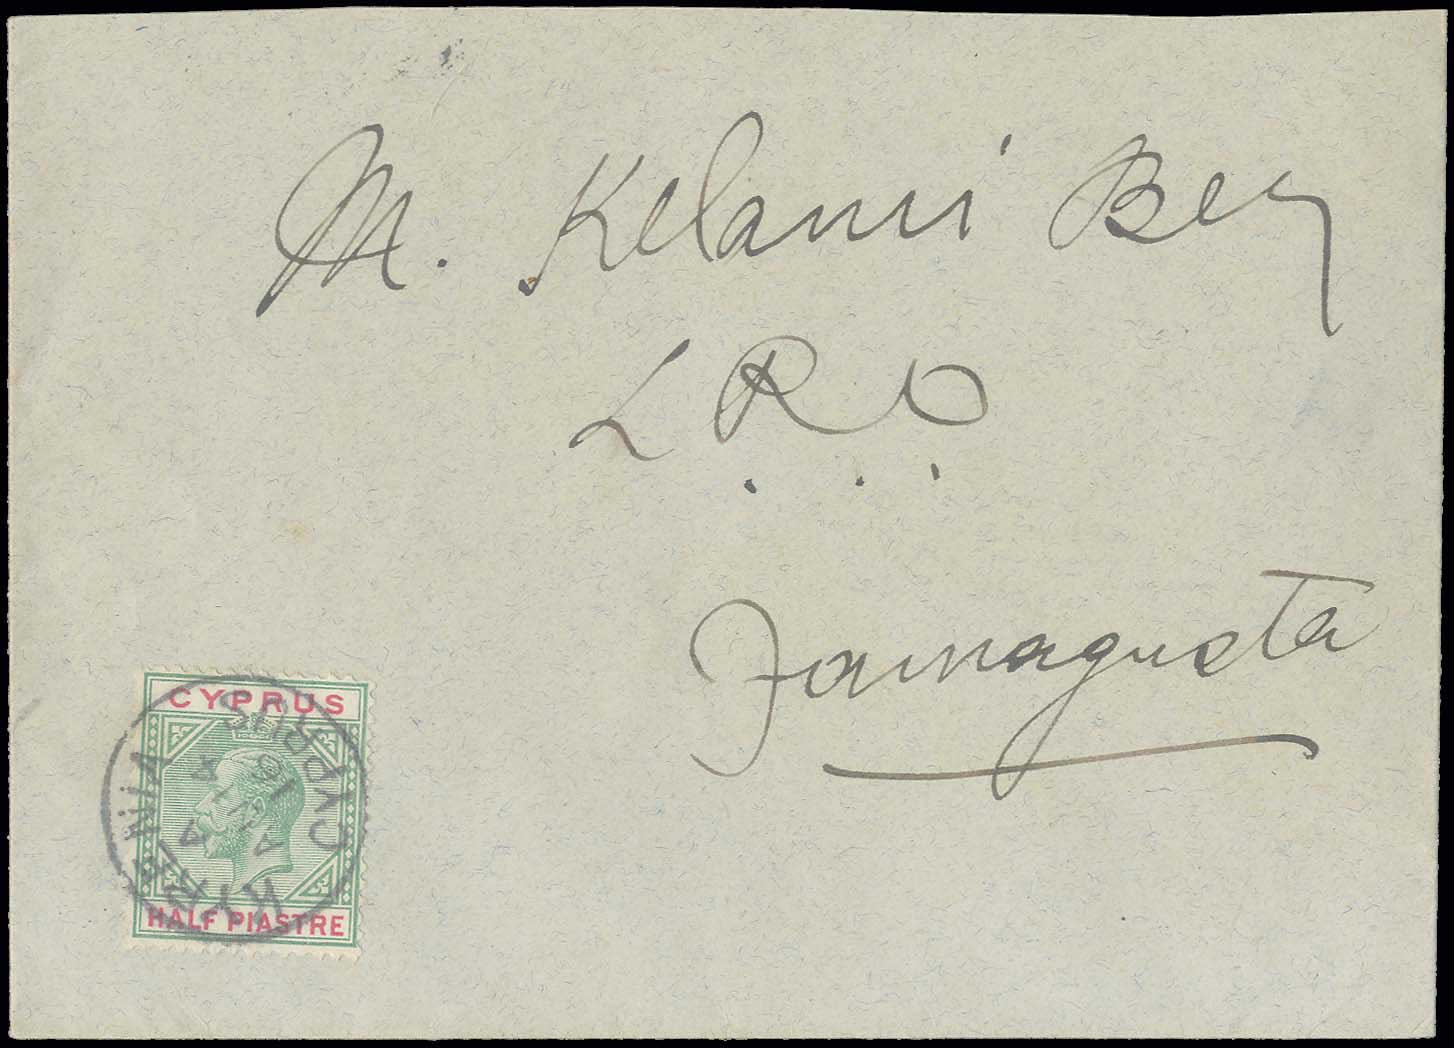 M. Kelami Bey
L. R. O.
Famagusta
CYPRUS
HALF PIASTRE
KYRENIA
CYPRUS